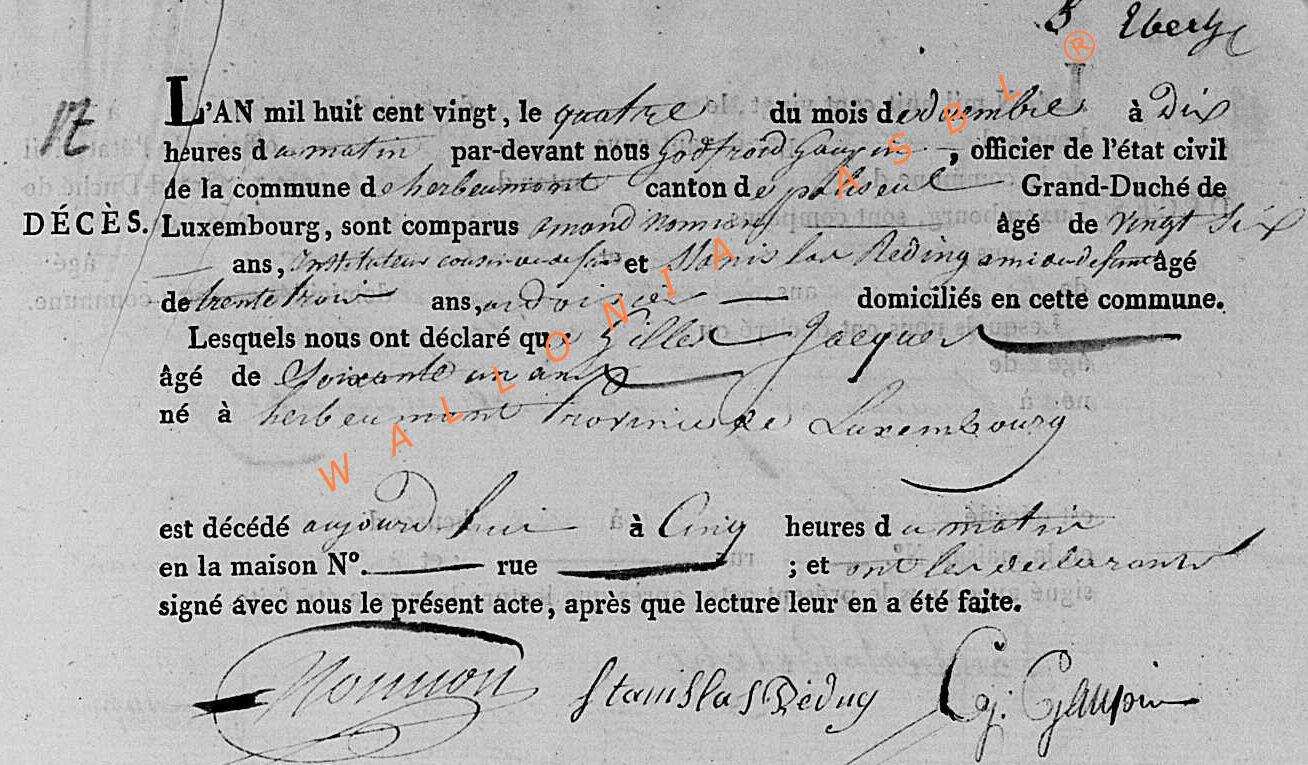 Ebertz
12
L'AN mil huit cent vingt, le quatre du mois de décembre à Dix
heures du matin par-devant nous Godfroid Gaupin, officier de l'état civil
de la commune de herbeumont canton de paliseul Grand-Duché de
DÉCÈS. Luxembourg, sont comparus amand âgé de vingt Six
ans, Instituteur cousin du defunt et Stanislas Reding ami du defunt âgé
de trente trois ans, ardoisier domiciliés en cette commune.
Lesquels nous ont déclaré que Gilles Jacques
âgé de Soixante un ans
né à herbeumont Province de Luxembourg
est décédé aujourd'hui à Cinq heures du matin
en la maison Nº. rue ; et ont les declarants
signé avec nous le présent acte, après que lecture leur en a été faite.
Stanislas Réding G: Gaupin
WALLONIA ASBL ®